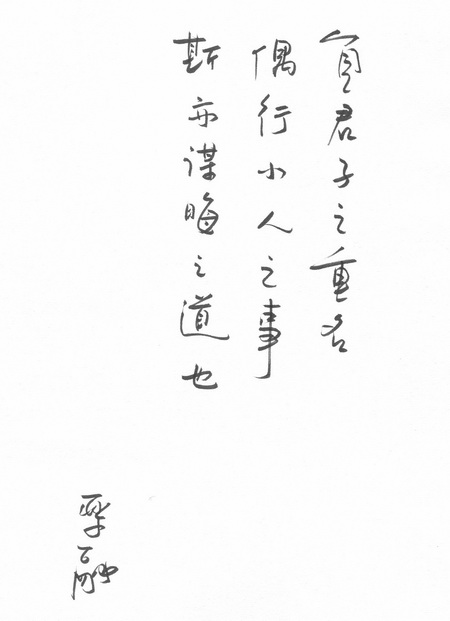 負君子之重名
偶行小人之事
斯亦謀晦之道也